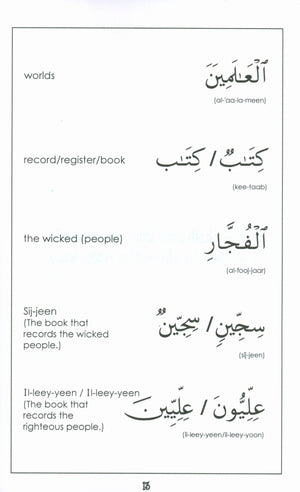 worlds ٱلْعَـٰلَمِينَ
(al-'aa-la-meen)
record/register/book كِتَـٰبٌ / كِتَـٰب
(kee-taab)
the wicked (people) ٱلْفُجَّارِ
(al-fooj-jaar)
Sij-jeen سِجِّينٍ / سِجِّينٌ
(The book that
records the wicked
people.)
(sij-jeen)
Il-leey-yeen / Il-leey-yeen عِلِّيُّونَ / عِلِّيِّينَ
(The book that
records the
righteous people.)
(il-leey-yeen/il-leey-yoon)